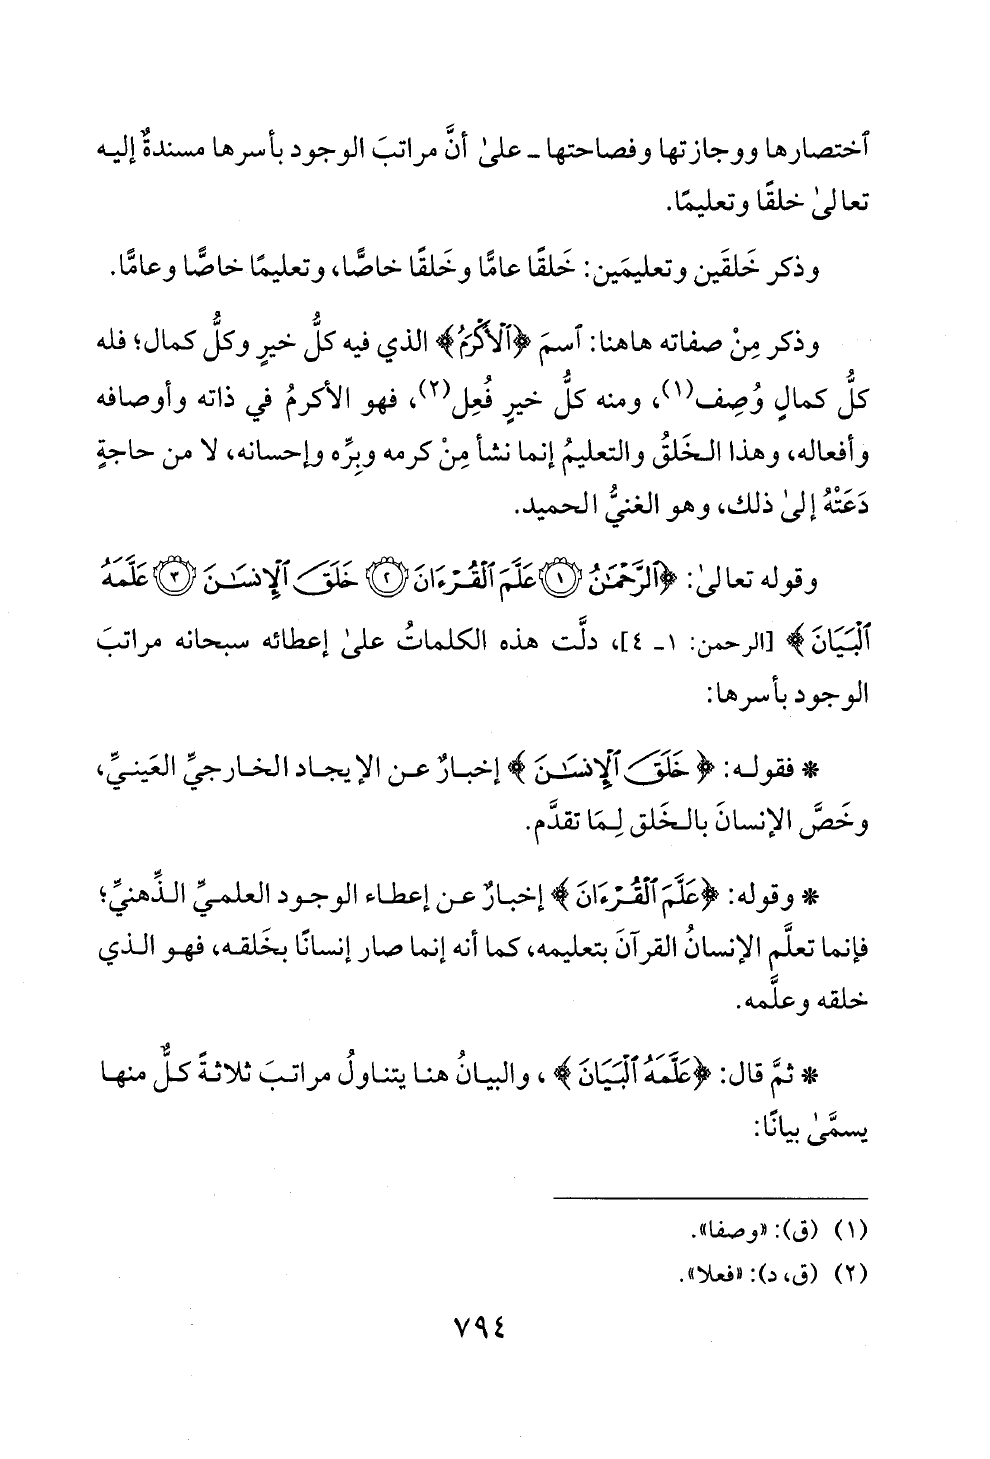 ٱختصارها ووجازتها وفصاحتها ـ علىٰ أنَّ مراتبَ الوجود بأسرها مسندةٌ إليه
تعالىٰ خلقًا وتعليمًا.
وذكر خَلقَين وتعليمَين: خَلقًا عامًّا وخَلقًا خاصًّا، وتعليمًا خاصًّا وعامًّا.
وذكر مِنْ صفاته هاهنا: ٱسمَ ﴿ٱلْأَكْرَمُ﴾ الذي فيه كلُّ خيرٍ وكلُّ كمال؛ فله
كلُّ كمالٍ وُصِف(١)، ومنه كلُّ خيرٍ فُعِل(٢)، فهو الأكرمُ في ذاته وأوصافه
وأفعاله، وهذا الخَلقُ والتعليمُ إنما نشأ مِنْ كرمه وبِرِّه وإحسانه، لا من حاجةٍ
دَعَتْهُ إلىٰ ذلك، وهو الغنيُّ الحميد.
وقوله تعالىٰ: ﴿ٱلرَّحْمَٰنُ ۝١ عَلَّمَ ٱلْقُرْءَانَ ۝٢ خَلَقَ ٱلْإِنسَٰنَ ۝٣ عَلَّمَهُ
ٱلْبَيَانَ﴾ [الرحمن: ١ـ ٤]، دلَّت هذه الكلماتُ علىٰ إعطائه سبحانه مراتبَ
الوجود بأسرها:
* فقوله: ﴿خَلَقَ ٱلْإِنسَٰنَ﴾ إخبارٌ عن الإيجاد الخارجيِّ العَينيِّ،
وخَصَّ الإنسانَ بالخَلق لِمَا تقدَّم.
* وقوله: ﴿عَلَّمَ ٱلْقُرْءَانَ﴾ إخبارٌ عن إعطاء الوجود العلميِّ الذِّهنيِّ؛
فإنما تعلَّم الإنسانُ القرآنَ بتعليمه، كما أنه إنما صار إنسانًا بخَلقه، فهو الذي
خلقه وعلَّمه.
* ثمَّ قال: ﴿عَلَّمَهُ ٱلْبَيَانَ﴾ ، والبيانُ هنا يتناولُ مراتبَ ثلاثةً كلٌّ منها
يسمَّىٰ بيانًا:
(١) (ق): «وصفا».
(٢) (ق، د): «فعلا».
٧٩٤